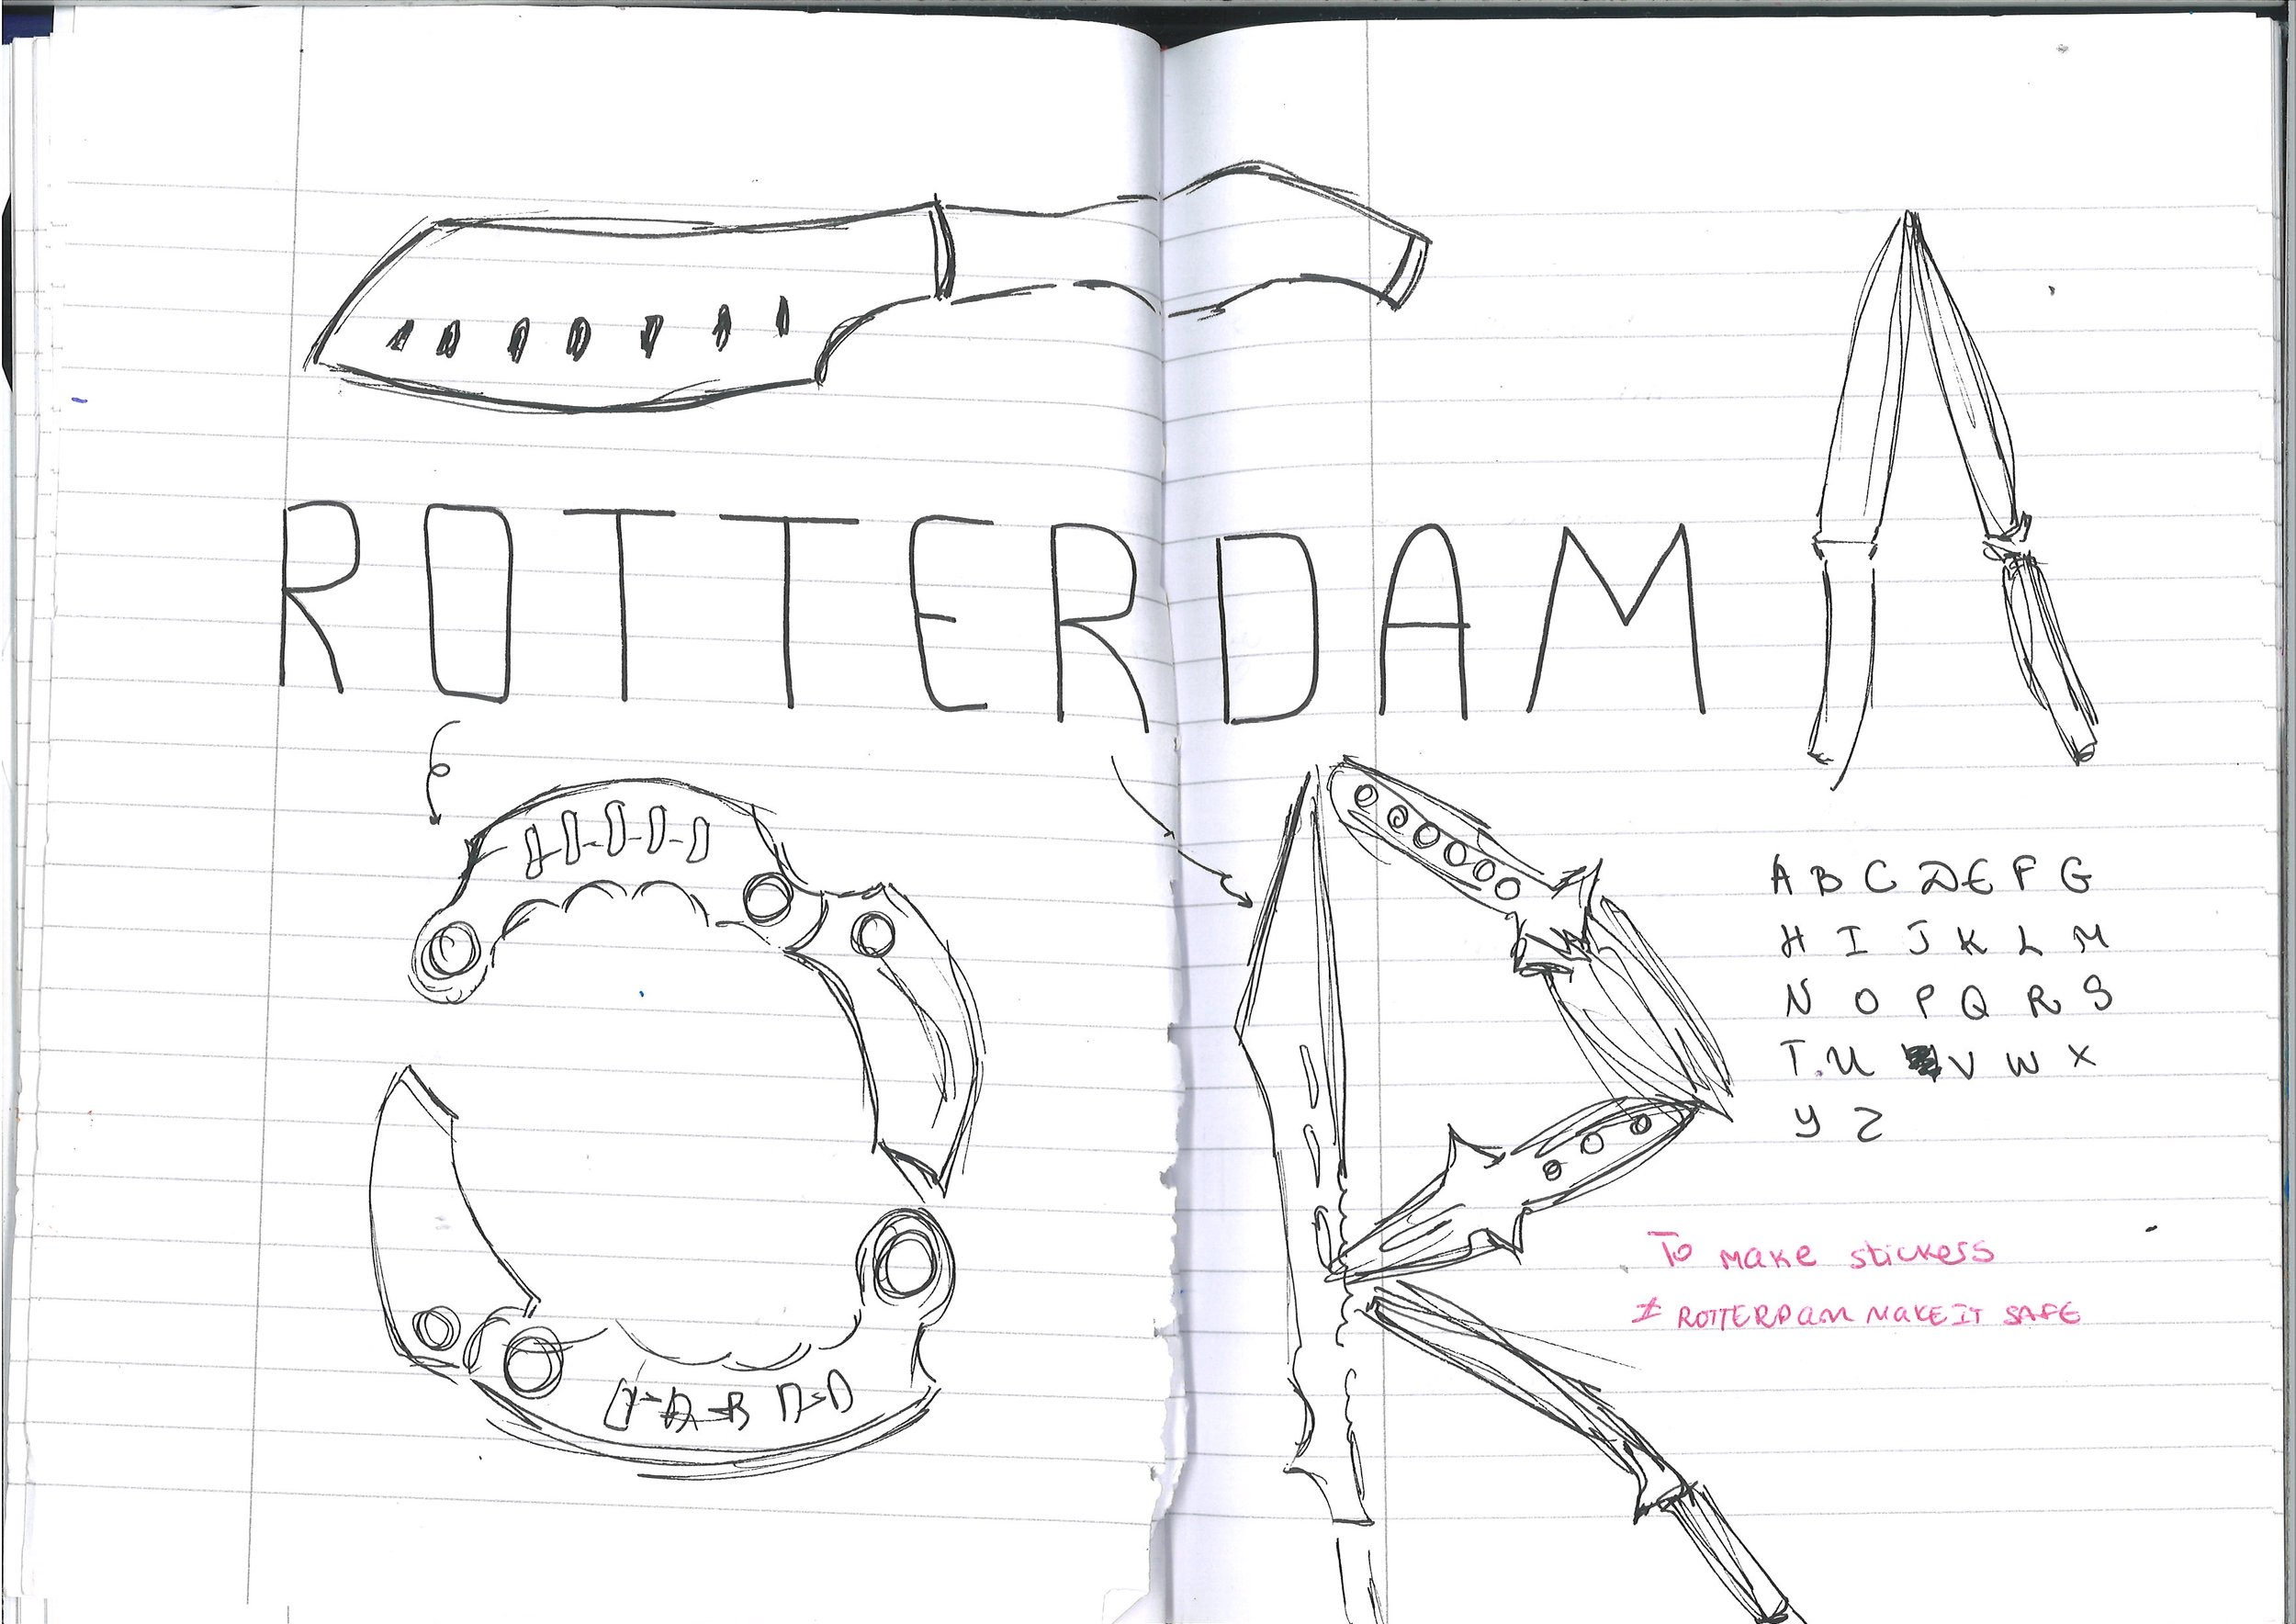 ROTTERDAM
A B C D E F G
H I J K L M
N O P Q R S
T.U V W X
Y Z
To make stickers
# ROTTERDAM MAKE IT SAFE